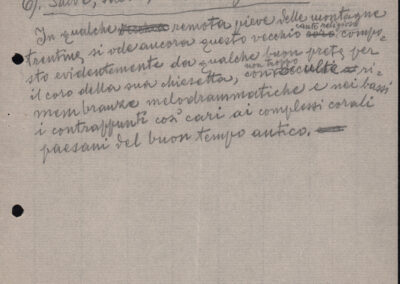 6). Salve,
In qualche remota pieve delle montagne
canto religioso
trentine, si ode ancora questo vecchio coro, compo-
sto evidentemente da qualche buon prete per
non troppo
il coro della sua chiesetta, con occulte ri-
membranze melodrammatiche e nei bassi
i contrappunti così cari ai complessi corali
paesani del buon tempo antico.